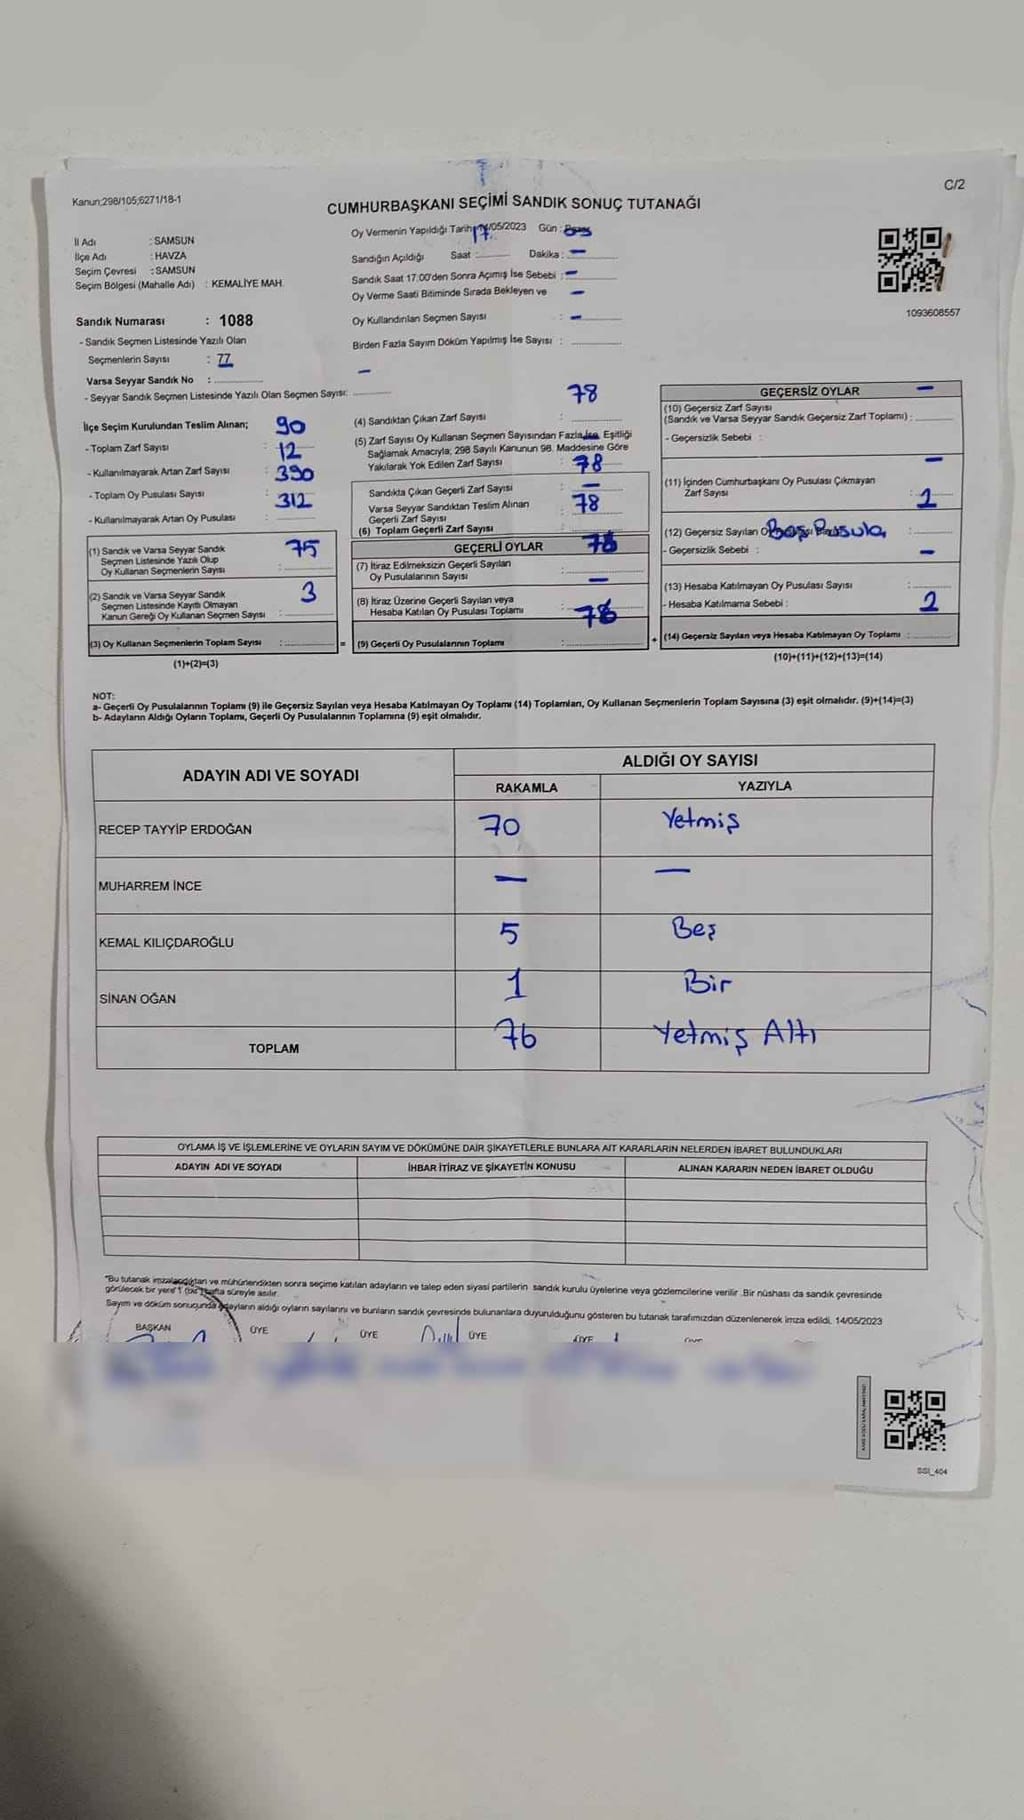 Kanun;298/105;6271/18-1
C/2
CUMHURBAŞKANI SEÇİMİ SANDIK SONUÇ TUTANAĞI
İl Adı : SAMSUN
İlçe Adı : HAVZA
Seçim Çevresi : SAMSUN
Seçim Bölgesi (Mahalle Adı) : KEMALİYE MAH.
Sandık Numarası : 1088
- Sandık Seçmen Listesinde Yazılı Olan
Seçmenlerin Sayısı : 77
Varsa Seyyar Sandık No :
- Seyyar Sandık Seçmen Listesinde Yazılı Olan Seçmen Sayısı: —
Oy Vermenin Yapıldığı Tarih /05/2023 Gün :
17 03
Sandığın Açıldığı Saat : Dakika : —
Sandık Saat 17:00'den Sonra Açımış İse Sebebi : —
Oy Verme Saati Bitiminde Sırada Bekleyen ve —
Oy Kullandırılan Seçmen Sayısı : —
Birden Fazla Sayım Döküm Yapılmış İse Sayısı :
1093608557
İlçe Seçim Kurulundan Teslim Alınan; 90
- Toplam Zarf Sayısı : 12
- Kullanılmayarak Artan Zarf Sayısı : 390
- Toplam Oy Pusulası Sayısı : 312
- Kullanılmayarak Artan Oy Pusulası :
(1) Sandık ve Varsa Seyyar Sandık 75
Seçmen Listesinde Yazılı Olup
Oy Kullanan Seçmenlerin Sayısı :
(2) Sandık ve Varsa Seyyar Sandık 3
Seçmen Listesinde Kayıtlı Olmayan
Kanun Gereği Oy Kullanan Seçmen Sayısı :
(3) Oy Kullanan Seçmenlerin Toplam Sayısı : =
(1)+(2)=(3)
78
(4) Sandıktan Çıkan Zarf Sayısı :
(5) Zarf Sayısı Oy Kullanan Seçmen Sayısından Fazla İse, Eşitliği
Sağlamak Amacıyla; 298 Sayılı Kanunun 98. Maddesine Göre
Yakılarak Yok Edilen Zarf Sayısı : 78
Sandıkta Çıkan Geçerli Zarf Sayısı : —
Varsa Seyyar Sandıktan Teslim Alınan : 78
Geçerli Zarf Sayısı
(6) Toplam Geçerli Zarf Sayısı :
GEÇERLİ OYLAR 76
(7) İtiraz Edilmeksizin Geçerli Sayılan
Oy Pusulalarının Sayısı : —
(8) İtiraz Üzerine Geçerli Sayılan veya
Hesaba Katılan Oy Pusulası Toplamı : 76
(9) Geçerli Oy Pusulalarının Toplamı : +
GEÇERSİZ OYLAR —
(10) Geçersiz Zarf Sayısı
(Sandık ve Varsa Seyyar Sandık Geçersiz Zarf Toplamı) :
- Geçersizlik Sebebi :
—
(11) İçinden Cumhurbaşkanı Oy Pusulası Çıkmayan
Zarf Sayısı : 2
(12) Geçersiz Sayılan
Boş Pusula
- Geçersizlik Sebebi : —
(13) Hesaba Katılmayan Oy Pusulası Sayısı :
- Hesaba Katılmama Sebebi : 2
(14) Geçersiz Sayılan veya Hesaba Katılmayan Oy Toplamı :
(10)+(11)+(12)+(13)=(14)
NOT:
a- Geçerli Oy Pusulalarının Toplamı (9) ile Geçersiz Sayılan veya Hesaba Katılmayan Oy Toplamı (14) Toplamları, Oy Kullanan Seçmenlerin Toplam Sayısına (3) eşit olmalıdır. (9)+(14)=(3)
b- Adayların Aldığı Oyların Toplamı, Geçerli Oy Pusulalarının Toplamına (9) eşit olmalıdır.
ADAYIN ADI VE SOYADI ALDIĞI OY SAYISI
RAKAMLA YAZIYLA
RECEP TAYYİP ERDOĞAN 70 Yetmiş
MUHARREM İNCE — —
KEMAL KILIÇDAROĞLU 5 Beş
SİNAN OĞAN 1 Bir
TOPLAM 76 Yetmiş Altı
OYLAMA İŞ VE İŞLEMLERİNE VE OYLARIN SAYIM VE DÖKÜMÜNE DAİR ŞİKAYETLERLE BUNLARA AİT KARARLARIN NELERDEN İBARET BULUNDUKLARI
ADAYIN ADI VE SOYADI İHBAR İTİRAZ VE ŞİKAYETİN KONUSU ALINAN KARARIN NEDEN İBARET OLDUĞU
*Bu tutanak imzalandıktan ve mühürlendikten sonra seçime katılan adayların ve talep eden siyasi partilerin sandık kurulu üyelerine veya gözlemcilerine verilir. Bir nüshası da sandık çevresinde
görülecek bir yere 1 (bir) hafta süreyle asılır.
Sayım ve döküm sonucunda adayların aldığı oyların sayılarını ve bunların sandık çevresinde bulunanlara duyurulduğunu gösteren bu tutanak tarafımızdan düzenlenerek imza edildi. 14/05/2023
BAŞKAN ÜYE ÜYE ÜYE ÜYE
SSI_404